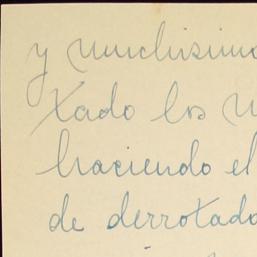 y muchisimo
xado los
haciendo el
de derrotado